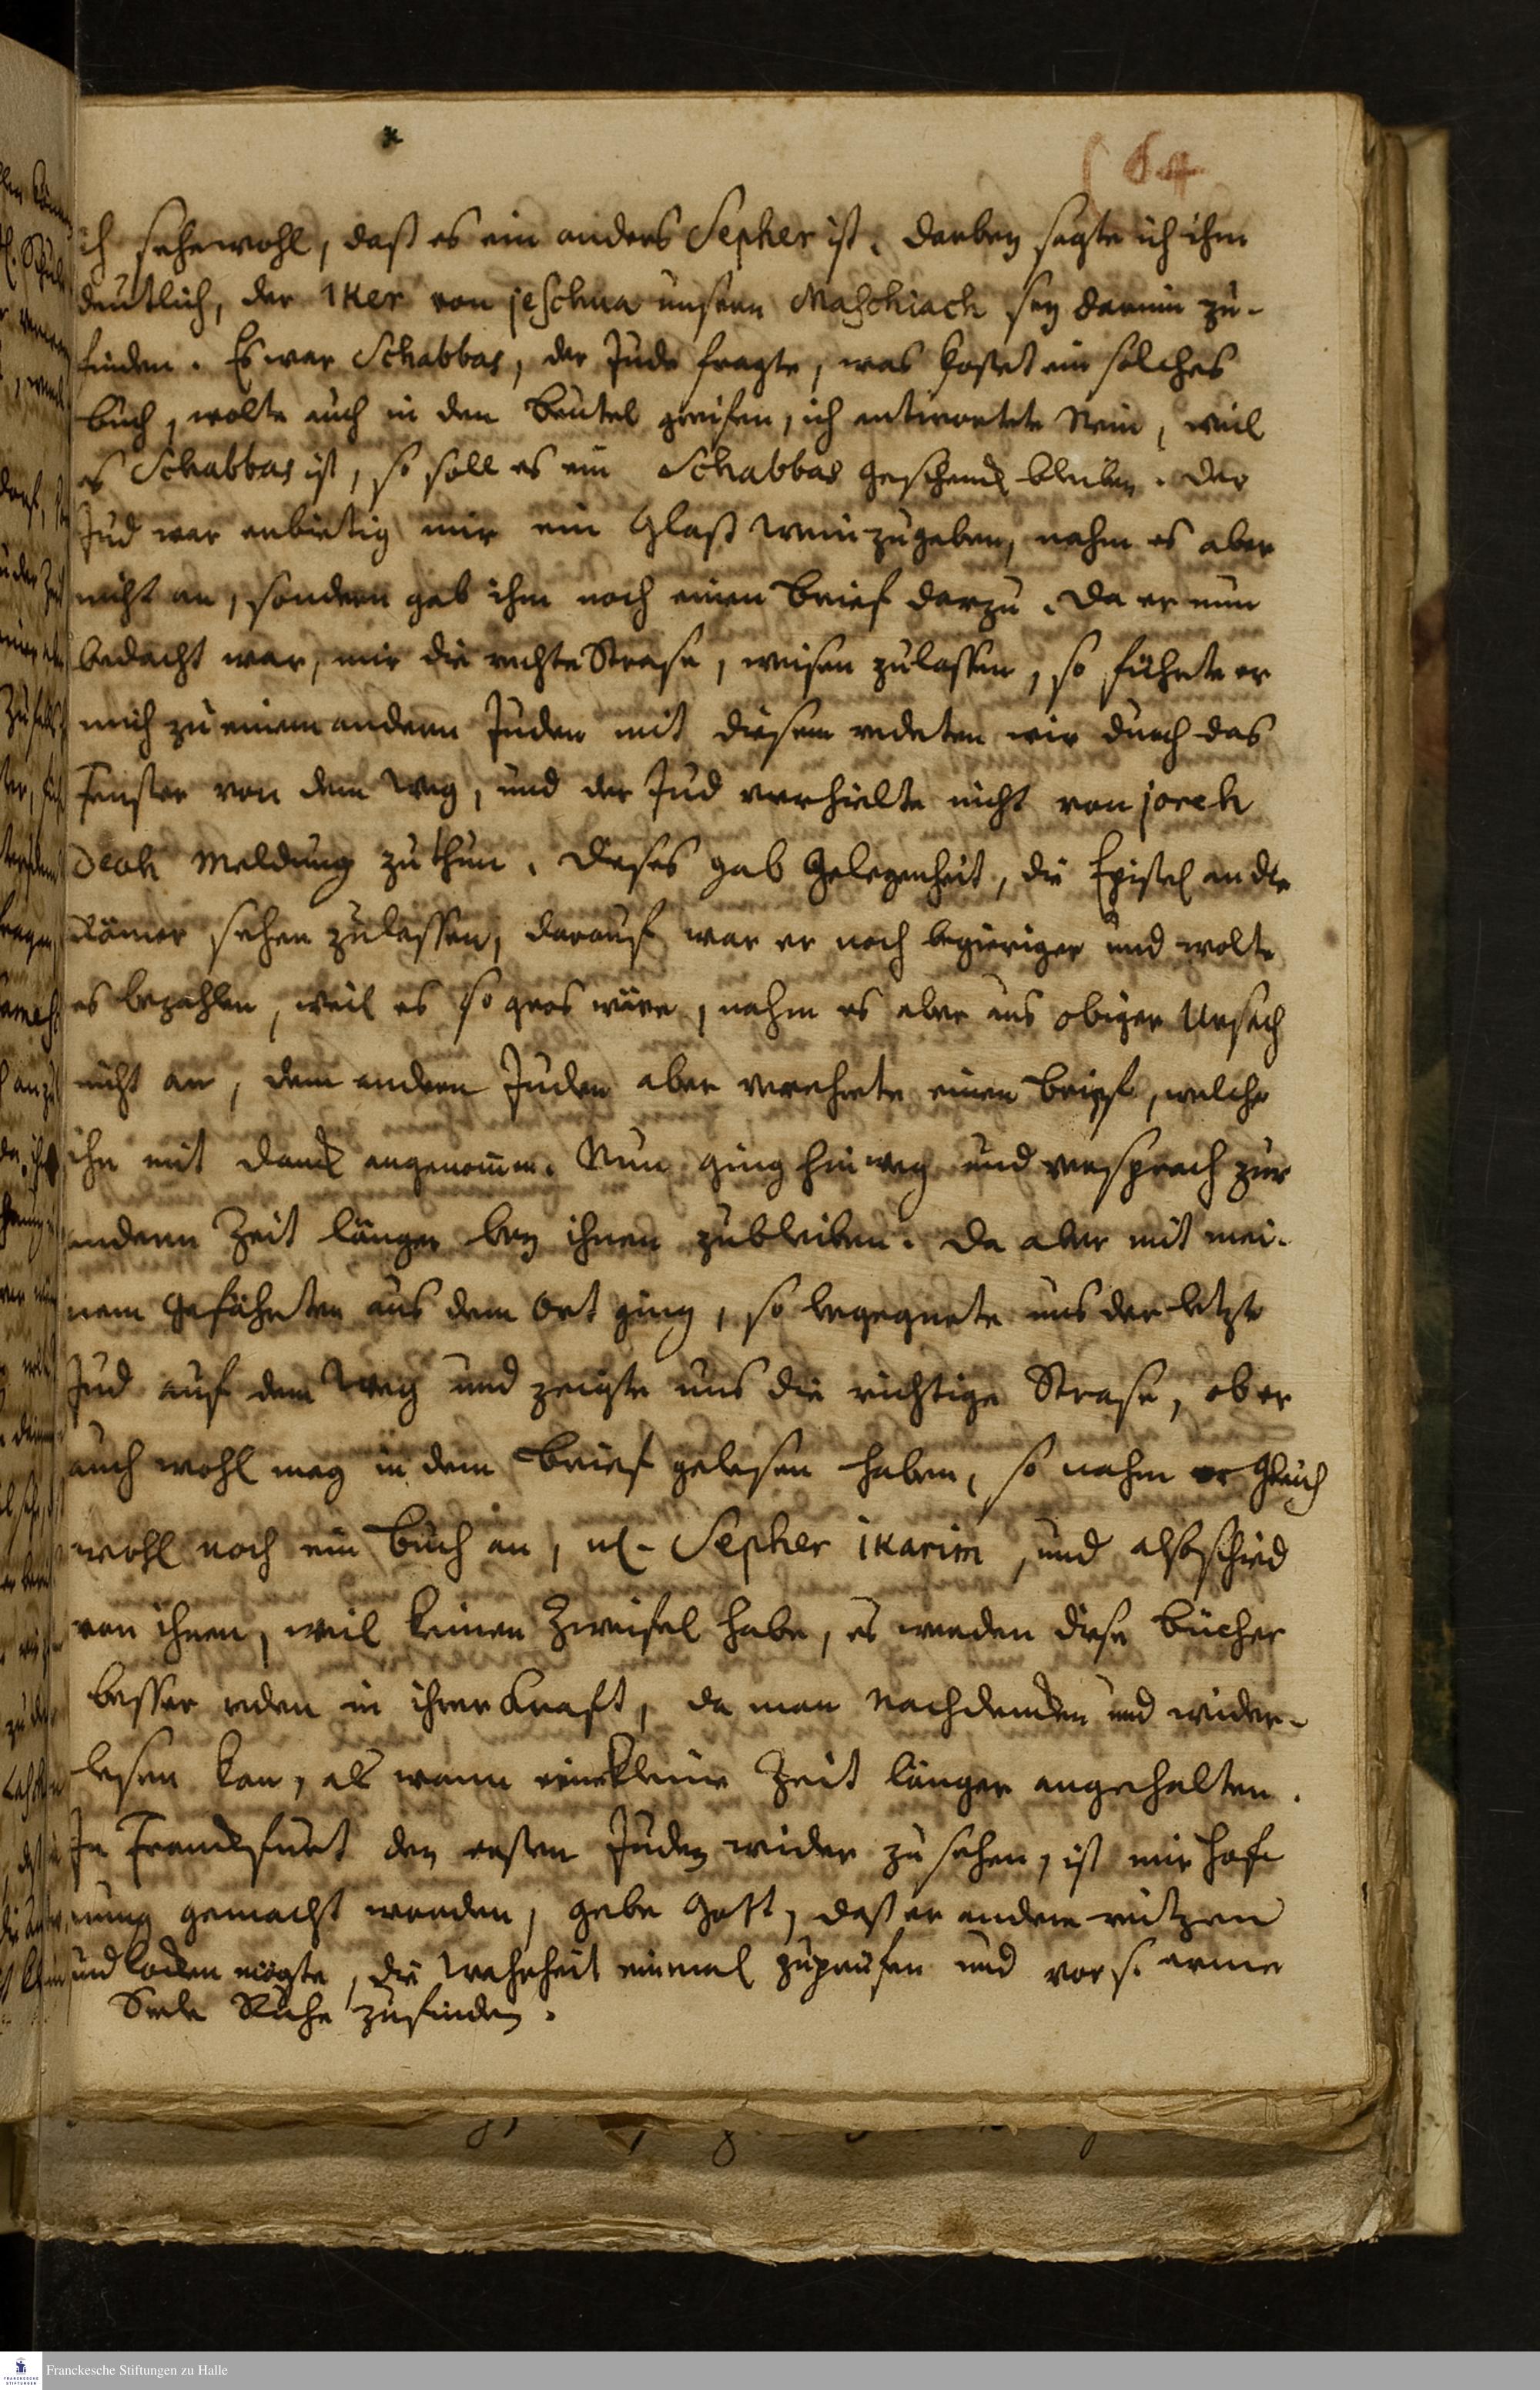 64
ich sehe wohl, daß es ein anders Sepher ist. darbey sagte ich ihm
deutlich, der Iker von jeschua unsern Maschiach sey darinn zu-
finden. Es war Schabbas, der Jude fragte, was kostet ein solches
buch, wolte auch in den beutel greifen, ich antwortete Nein, weil
es Schabbas ist, so soll es ein Schabbas geschenck bleiben. der
Jud war erbietig mir ein Glaß wein zugeben, nahm es aber
nicht an, sondern gab ihm noch einen brief darzu. Da er nun
bedacht war, mir die rechte Strase, weisen zulassen, so führte er
mich zu einem andern Juden mit diesem redeten wir durch das
Fenster von dem weg, und der Jud verhielte nicht von joreh
deah Meldung zuthun. dieses gab Gelegenheit, die Epistel an die
Römer sehen zulassen, darauf war er noch begieriger und wolte
es bezahlen, weil es so gros wäre, nahm es aber aus obiger Ursach
nicht an, dem andern Juden aber verehrte einen brief, welcher
ihn mit danck angenomen. Nun ging hinweg und versprach zur
andern Zeit länger bey ihnen zubleiben. da aber mit mei-
nem Gefährten aus dem Ort ging, so begegnete uns der letzte
Jud auf dem weg und zeigte uns die richtige Strase, ob er
auch wohl mag in dem brief gelesen haben, so nahm er gleich
wohl noch ein buch an, nl. Sepher ikarim, und also schied
von ihnen, weil keinen Zweifel habe, es werden diese bücher
besser reden in ihrer Kraft, da man nachdencken und wider-
lesen kan, als wann eine kleine Zeit länger angehalten.
In Franckfurt den ersten Juden wider zu sehen, ist mir hof-
nung gemacht worden, gebe Gott, daß er andere reitzen
und locken mögte, die wahrheit einmal zuprüfen und vor s. arme
Seele Ruhe zufinden.
Franckesche Stiftungen zu Halle